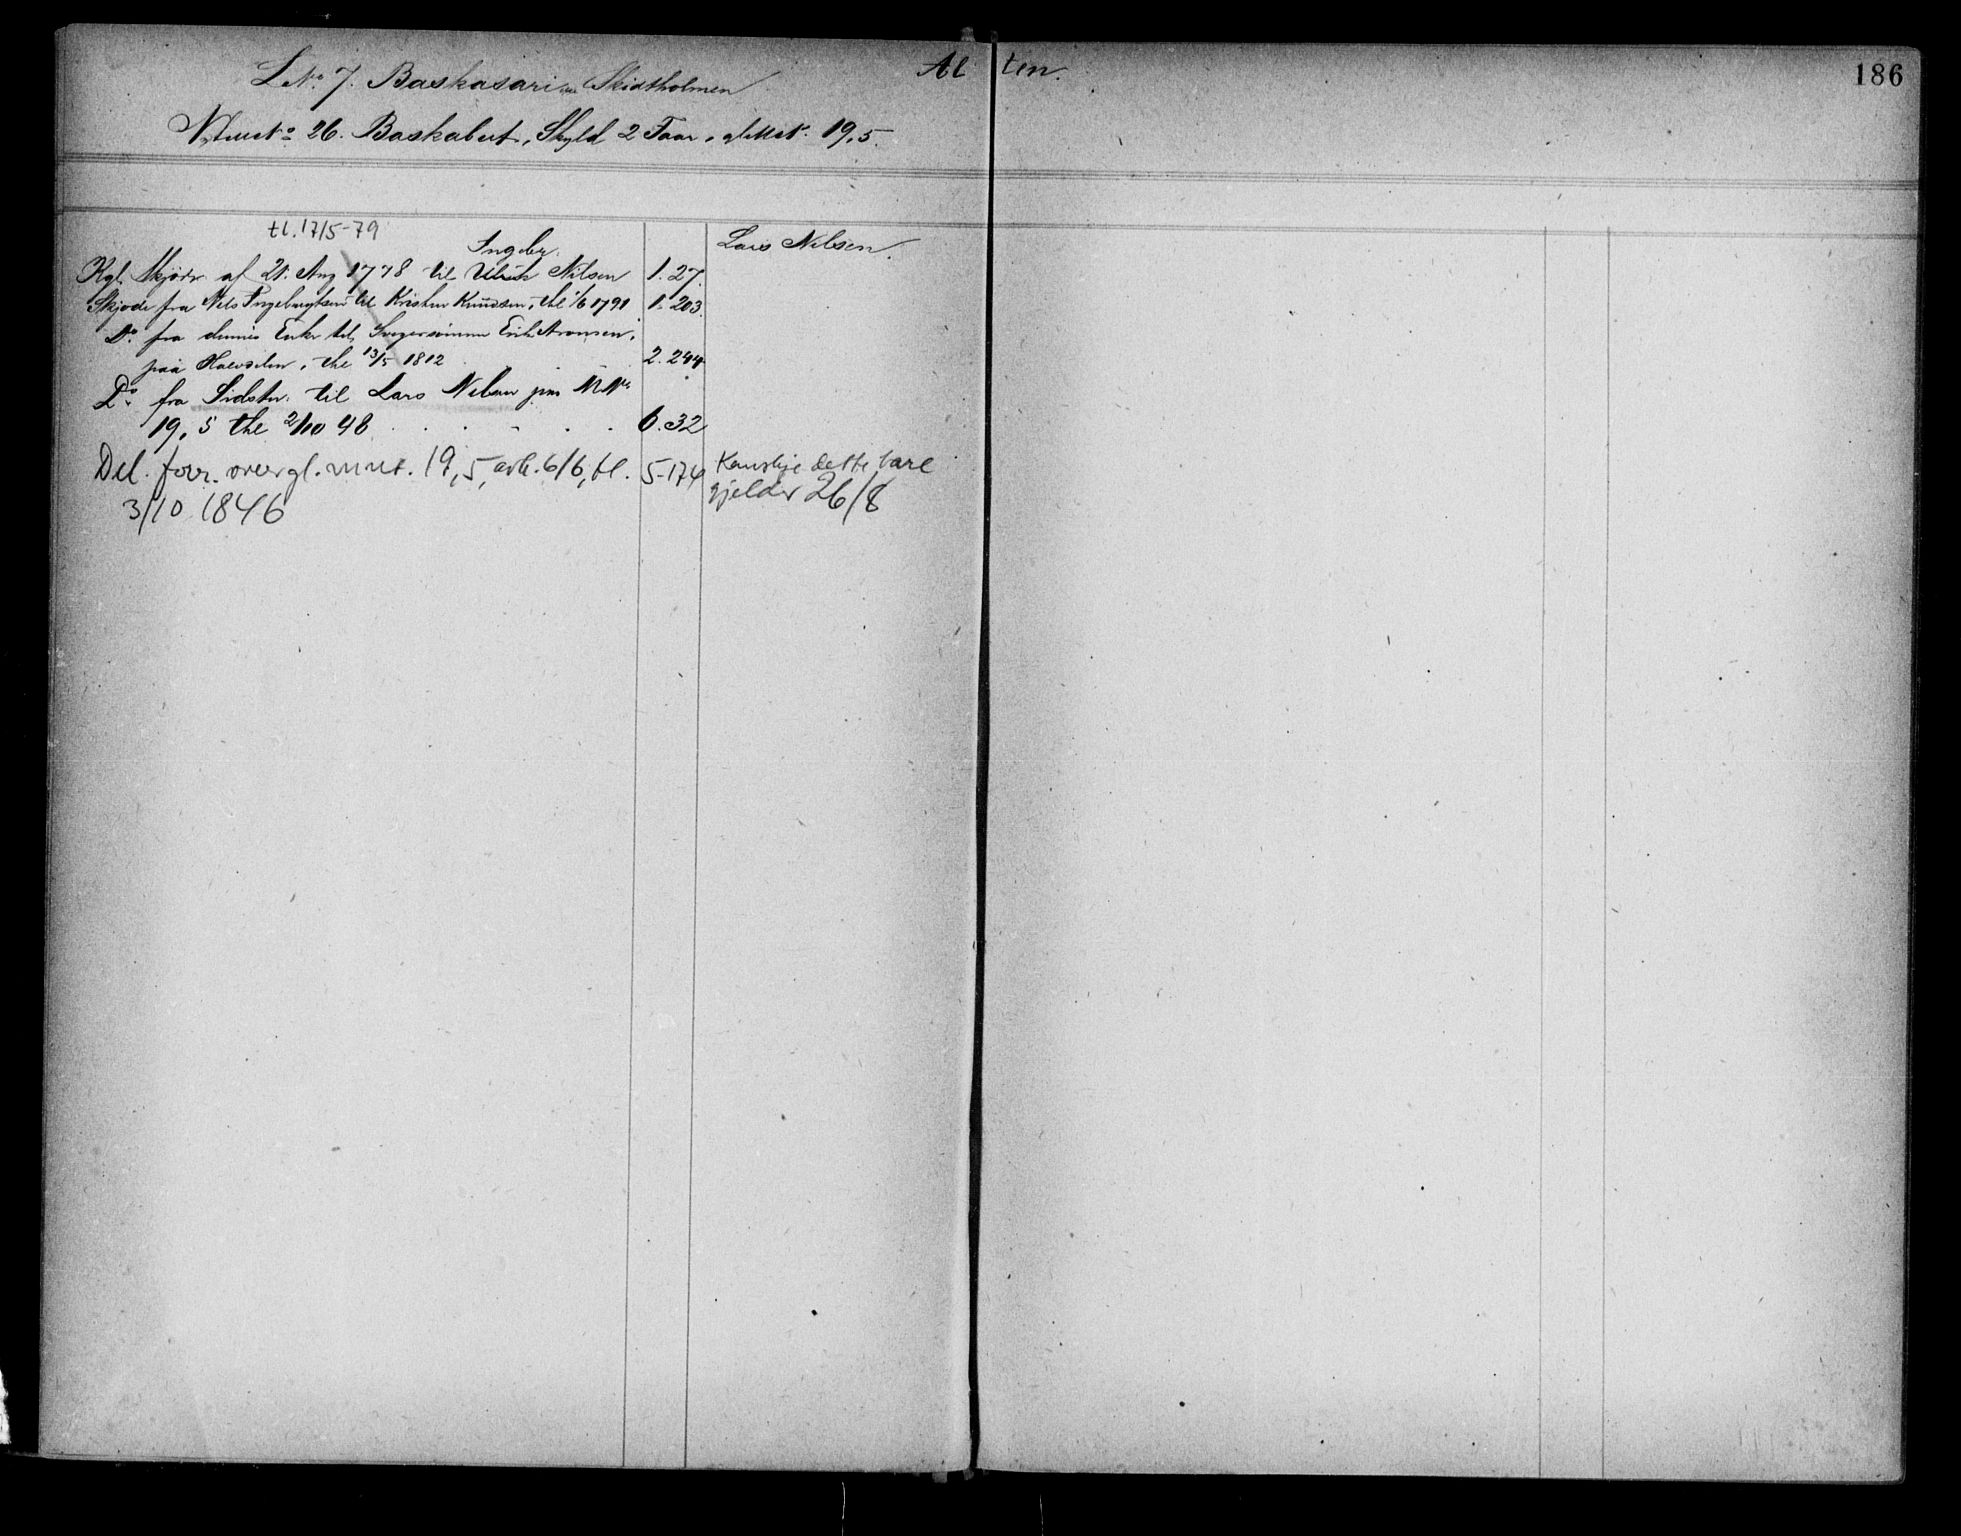 Al ten.
186
LNo. 7. Baskasari Skidtholmen
No 26. Baskabut, Skyld 2 Faar, glMnr. 19,5.
tl. 17/5-79
Ingebr.
Lars Nilsen.
Kgl. Skjøde af 21. Aug 1778 til Ulrich Nilsen 1. 27.
Skjøde fra Nils Ingebrigtsen til Kristen Knudsen, thl 1/6 1791 1. 203.
Do. fra dennes Enke til Svigersønnen Erik Aronsen,
paa, thl 13/5 1812 2. 244
Do. fra Sidstn. til Lars Nilsen paa MNo
19,5 thl 2/10 48 6. 32
Del. forr. over gl. mnr. 19,5, avh. 6/6, tl. 5-174
3/10 1846
Kanskje dette bare
gjelder 26/8